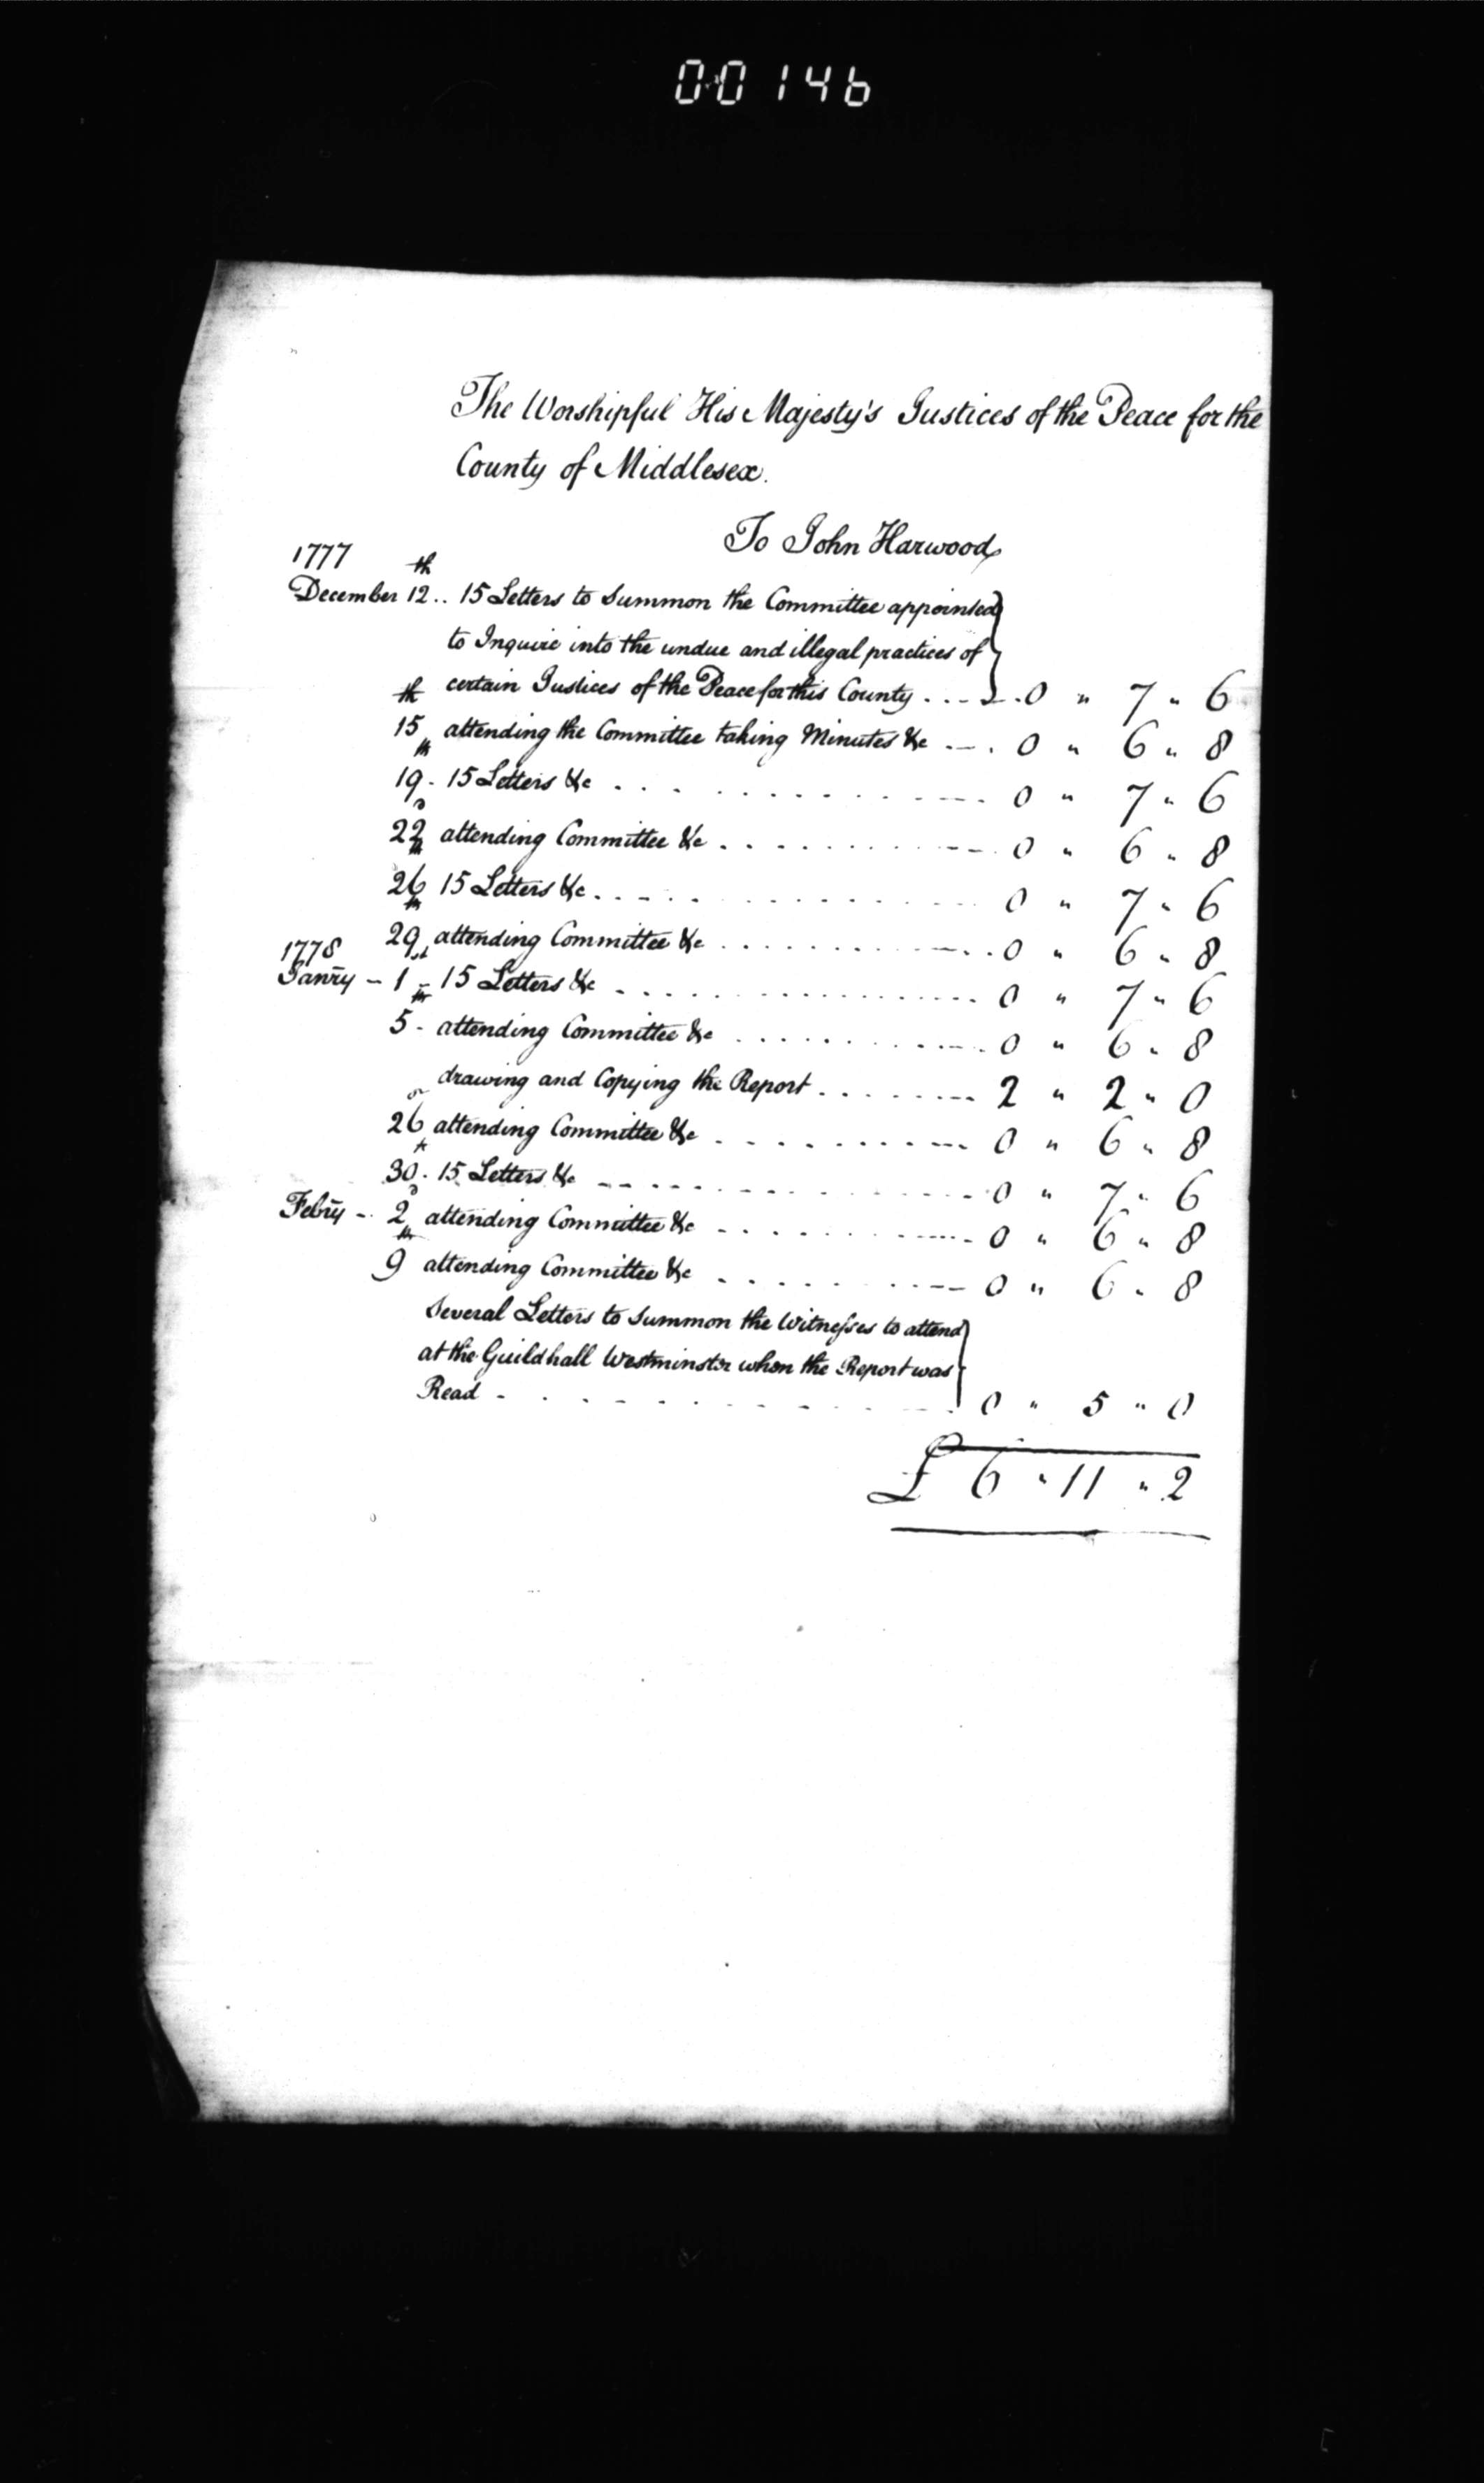 00146
The Worshipful His Majesty's Justices of the Peace for the
County of Middlesex.
To John Harwood
1777
December 12th .. 15 Letters to Summon the Committee appointed
to Inquire into the undue and illegal practices of
certain Justices of the Peace for this County . . . . 0 " 7 " 6
15th attending the Committee taking Minutes &c . . . 0 " 6 " 8
19th . 15 Letters &c . . . . 0 " 7 " 6
22d attending Committee &c . . . . 0 " 6 " 8
26th 15 Letters &c . . . . 0 " 7 " 6
29th attending Committee &c . . . . 0 " 6 " 8
1778
Janry - 1st - 15 Letters &c . . . . 0 " 7 " 6
5th - attending Committee &c . . . . 0 " 6 " 8
drawing and Copying the Report . . . . 2 " 2 " 0
26 attending Committee &c . . . . 0 " 6 " 8
30th . 15 Letters &c . . . . 0 " 7 " 6
Febry - 2d attending Committee &c . . . . 0 " 6 " 8
9th attending Committee &c . . . . 0 " 6 " 8
Several Letters to Summon the Witnesses to attend
at the Guildhall Westminster when the Report was
Read - . . . . 0 " 5 " 0
£ 6 " 11 " 2